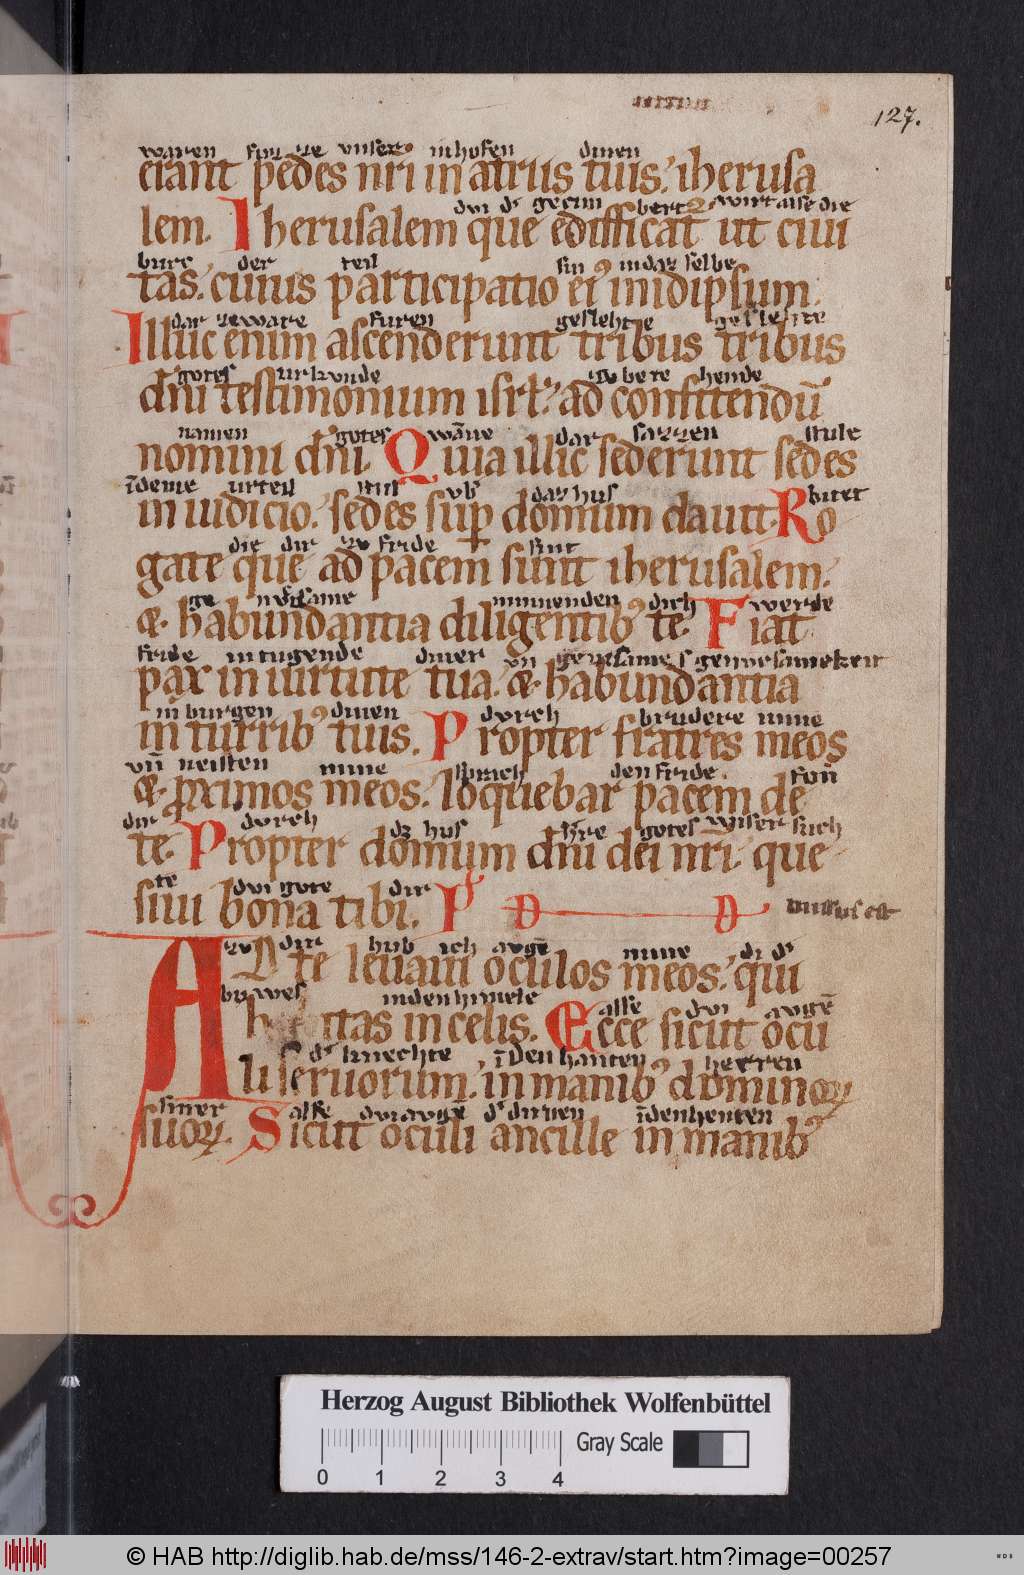 127.
waren unser inhofen dinen
erant pedes nr̄i in atriis tuis. iherusa
wirt alse die
lem. Iherusalem que edifficat̄ ut ciui
burc der teil sin indaz selbe
tas. cuius participatio ei᷒ inidipsum.
dar zeware furen geslehte geslehte
Illuc enim ascenderunt tribus tribus
gotes urkunde zu bete hende
dn̄i testimonium isrł. ad confitendū
namen gotes wāne dar sazzen stule
nomini dn̄i. Quia illic sederunt sedes
īdeme urteil stul vb̄ daz hus bitet
in iudicio. sedes sup̄ domum dauit. Ro
die dir zv fride sint
gate que ad pacem sunt iherusalem.
minnenden dich werde
& habundantia diligentib᷒ te. Fiat
fride intugende diner vn̄
pax in uirtute tua. & habundantia
in burgen dinen durch brudere mine
in turrib᷒ tuis. Propter fratres meos
vn̄ neisten mine sprach den fride. fon
& ꝓximos meos. loquebar pacem de
dir durch dz hus h̄re gotes vnser such
te. Propter domum dn̄i dei nr̄i. que
te dvi gote dir
siui bona tibi. P D D
zv dir hub ich avgē mine di d᷒
AD te leuaui oculos meos. qui
buwes inden himele alse dvi avgē
h itas in celis. Ecce sicut ocu
d᷒ knechte īden hanten herren
li seruorum. in manib᷒ dominoꝝ
siner alse dvi avge d᷒ dirnen īdenhenten
suoꝝ. Sicut oculi ancille in manib᷒
Herzog August Bibliothek Wolfenbüttel
Gray Scale
0 1 2 3 4
© HAB http://diglib.hab.de/mss/146-2-extrav/start.htm?image=00257